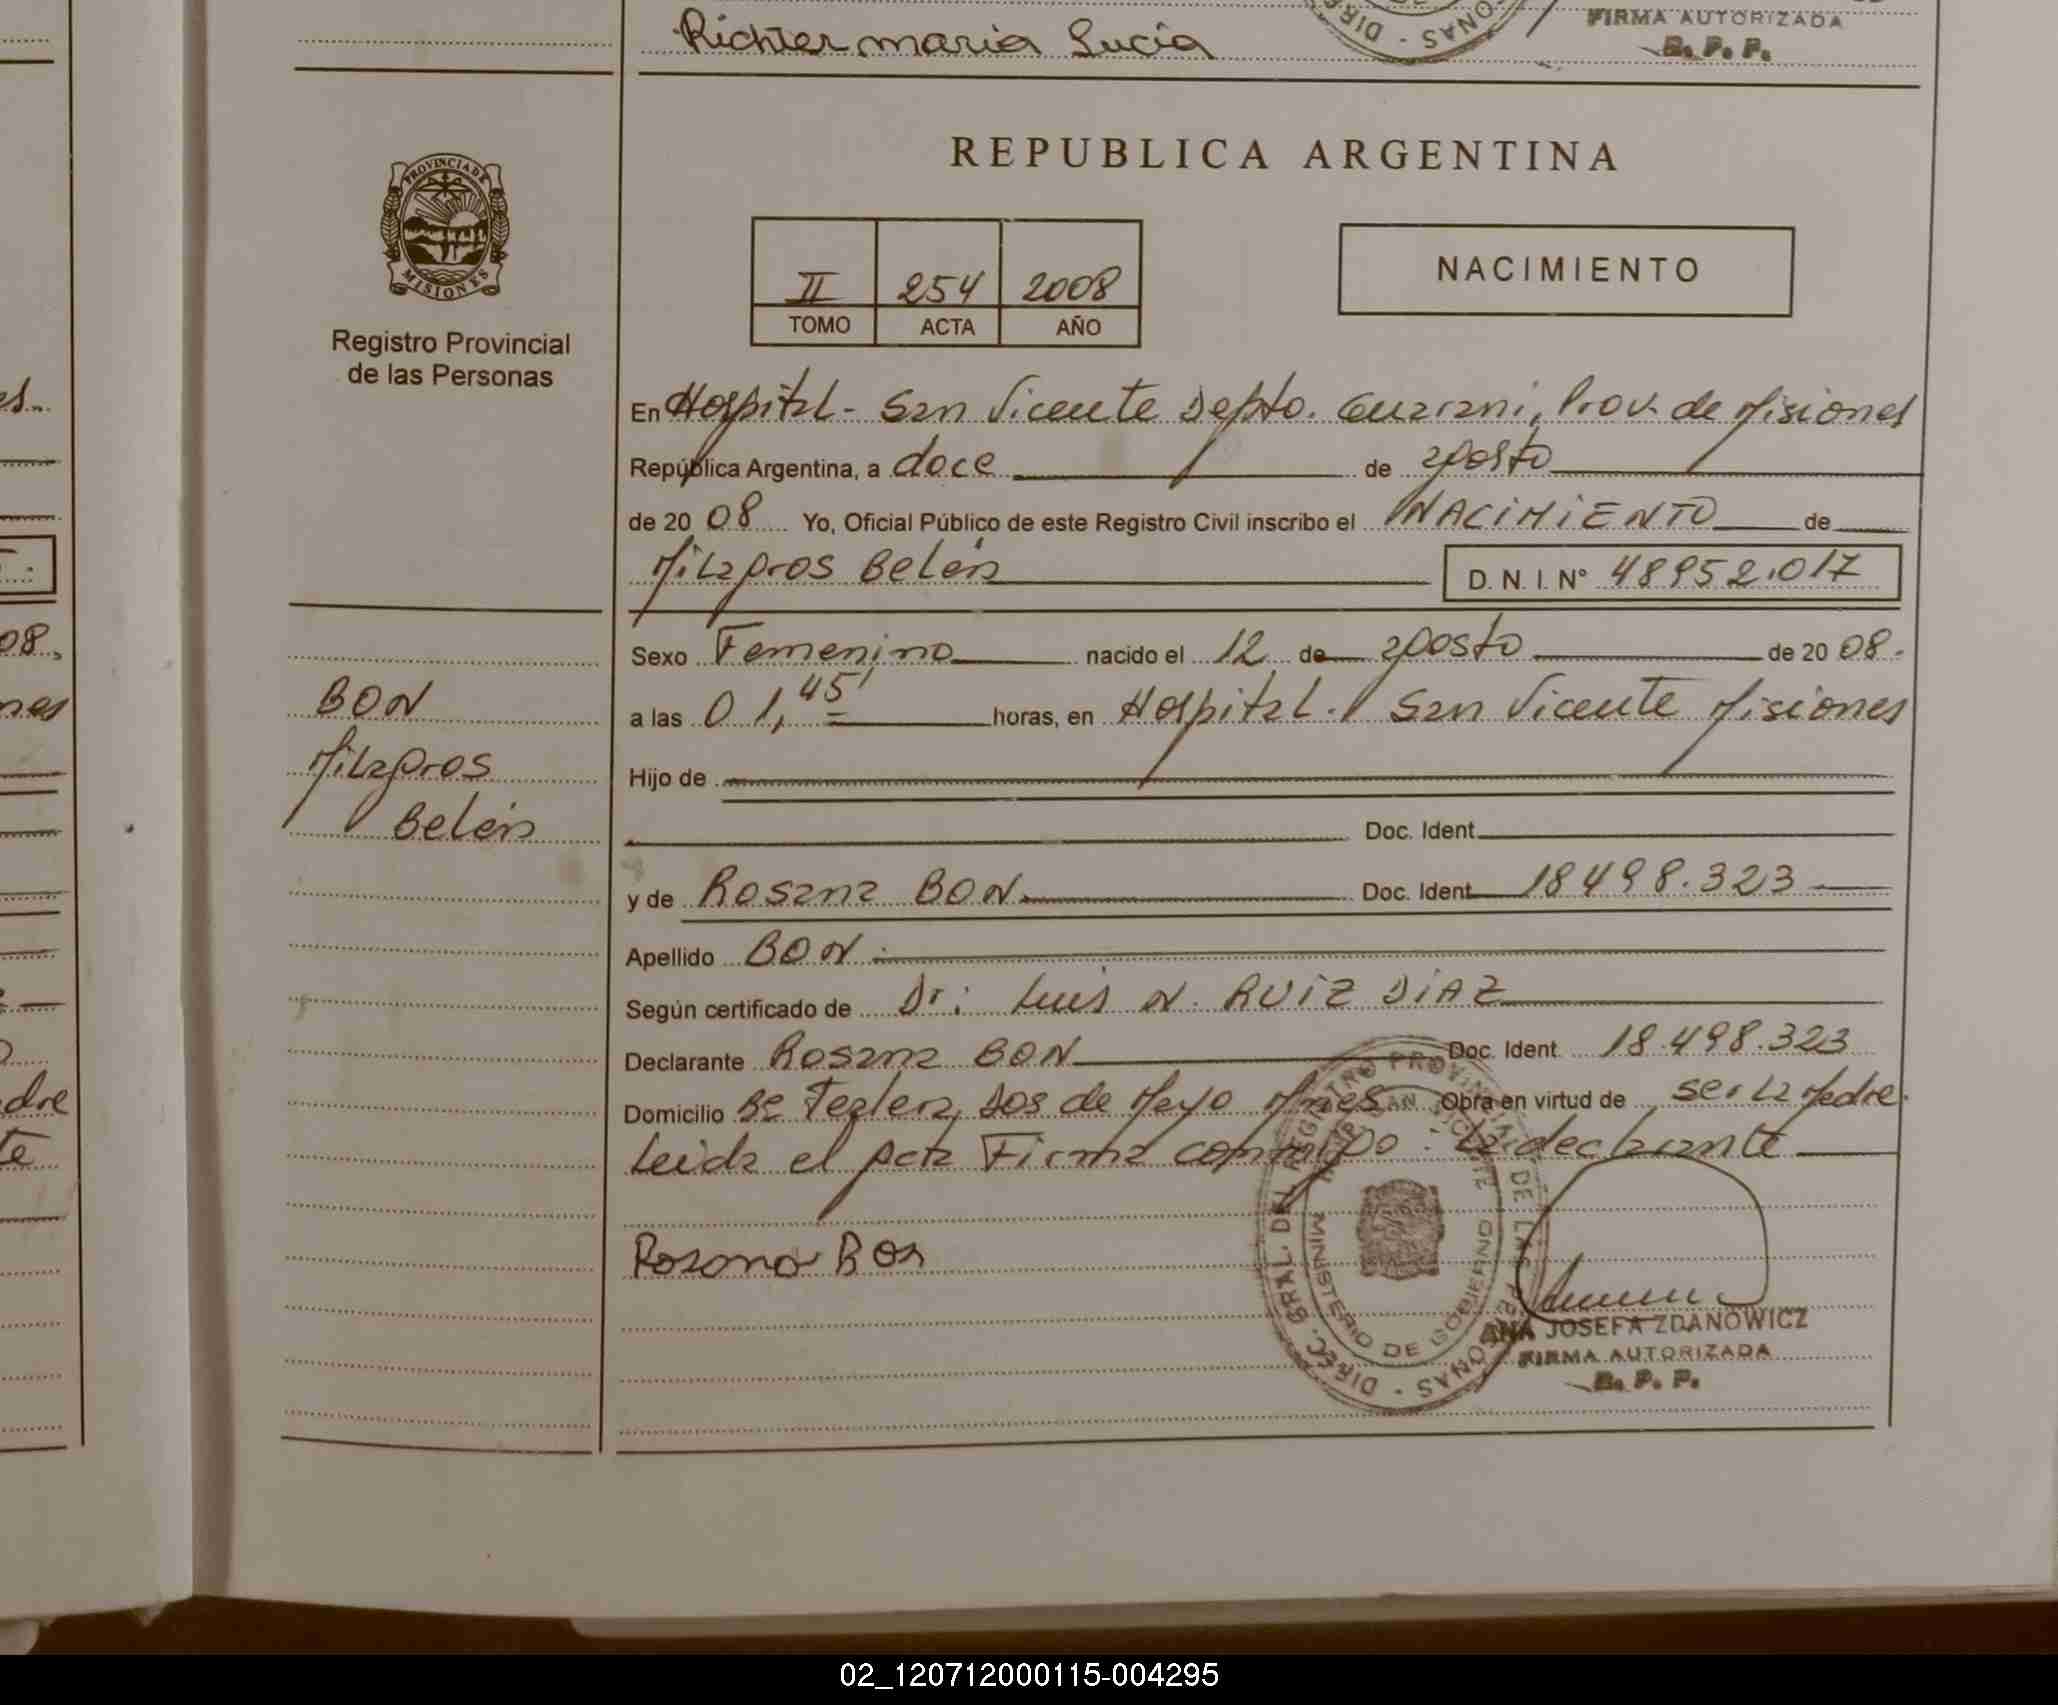 Richter maria Lucia
FIRMA AUTORIZADA
R. P. P.
PROVINCIA DE
MISIONES
Registro Provincial
de las Personas
REPUBLICA ARGENTINA
II 254 2008
TOMO ACTA AÑO
NACIMIENTO
En Hospital - San Vicente Depto. Guarani, Prov. de Misiones
República Argentina, a doce de agosto
de 20 08 Yo, Oficial Público de este Registro Civil inscribo el NACIMIENTO de
Milagros Belén
D. N. I. Nº 48952.017
Sexo Femenino nacido el 12 de agosto de 20 08.
a las 01,45' horas, en Hospital. San Vicente Misiones
Hijo de
Doc. Ident
y de Rosana BON Doc. Ident 18498.323
Apellido BON.
Según certificado de Dr: Luis N. RUIZ DIAZ
Declarante Rosana BON Doc. Ident. 18.498.323
Domicilio Bº Tealera, Dos de Mayo Mnes Obra en virtud de ser la Madre.
Leida el acta Firma conmigo: la declarante
Rosana Bon
BON
Milagros
Belén
DIREC. GRAL. DEL REGISTRO PROVINCIAL DE LAS PERSONAS
MINISTERIO DE GOBIERNO
ANA JOSEFA ZDANOWICZ
FIRMA AUTORIZADA
R. P. P.
02_120712000115-004295